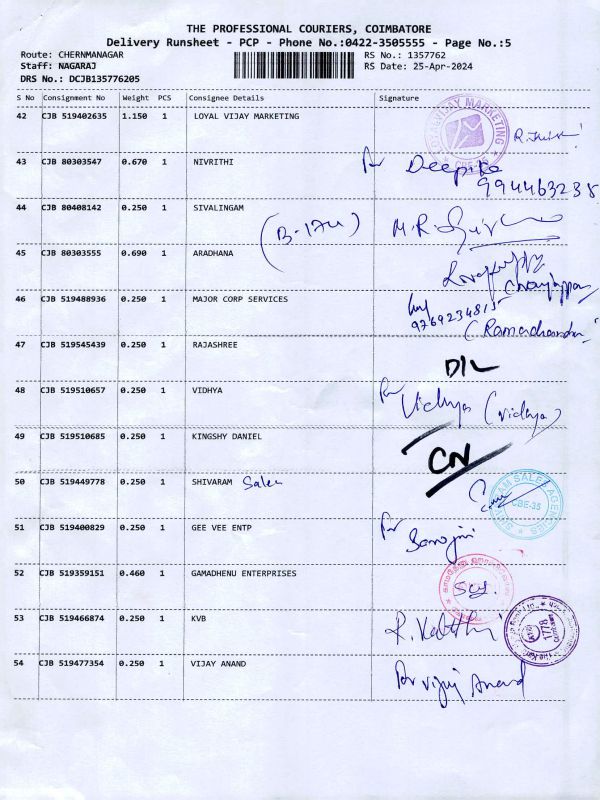 THE PROFESSIONAL COURIERS, COIMBATORE
Delivery Runsheet - PCP - Phone No.:0422-3505555 - Page No.:5
Route: CHERNMANAGAR
RS No.: 1357762
Staff: NAGARAJ
RS Date: 25-Apr-2024
DRS No.: DCJB135776205
S No Consignment No Weight PCS Consignee Details Signature
42 CJB 519402635 1.150 1 LOYAL VIJAY MARKETING
VIJAY MARKETING
CBE-35
43 CJB 80303547 0.670 1 NIVRITHI
Deepika
994463238
44 CJB 80408142 0.250 1 SIVALINGAM
(B-174)
M.R.
45 CJB 80303555 0.690 1 ARADHANA
46 CJB 519488936 0.250 1 MAJOR CORP SERVICES
9769234815
(Ramachandra
47 CJB 519545439 0.250 1 RAJASHREE
D/L
48 CJB 519510657 0.250 1 VIDHYA
Vidhya (Vidhya)
49 CJB 519510685 0.250 1 KINGSHY DANIEL
CN
50 CJB 519449778 0.250 1 SHIVARAM Sales
SHIVARAM SALES AGENCIES
CBE-35
51 CJB 519400829 0.250 1 GEE VEE ENTP
Sarojini
52 CJB 519359151 0.460 1 GAMADHENU ENTERPRISES
53 CJB 519466874 0.250 1 KVB
R.
1778
54 CJB 519477354 0.250 1 VIJAY ANAND
Vijay Anand